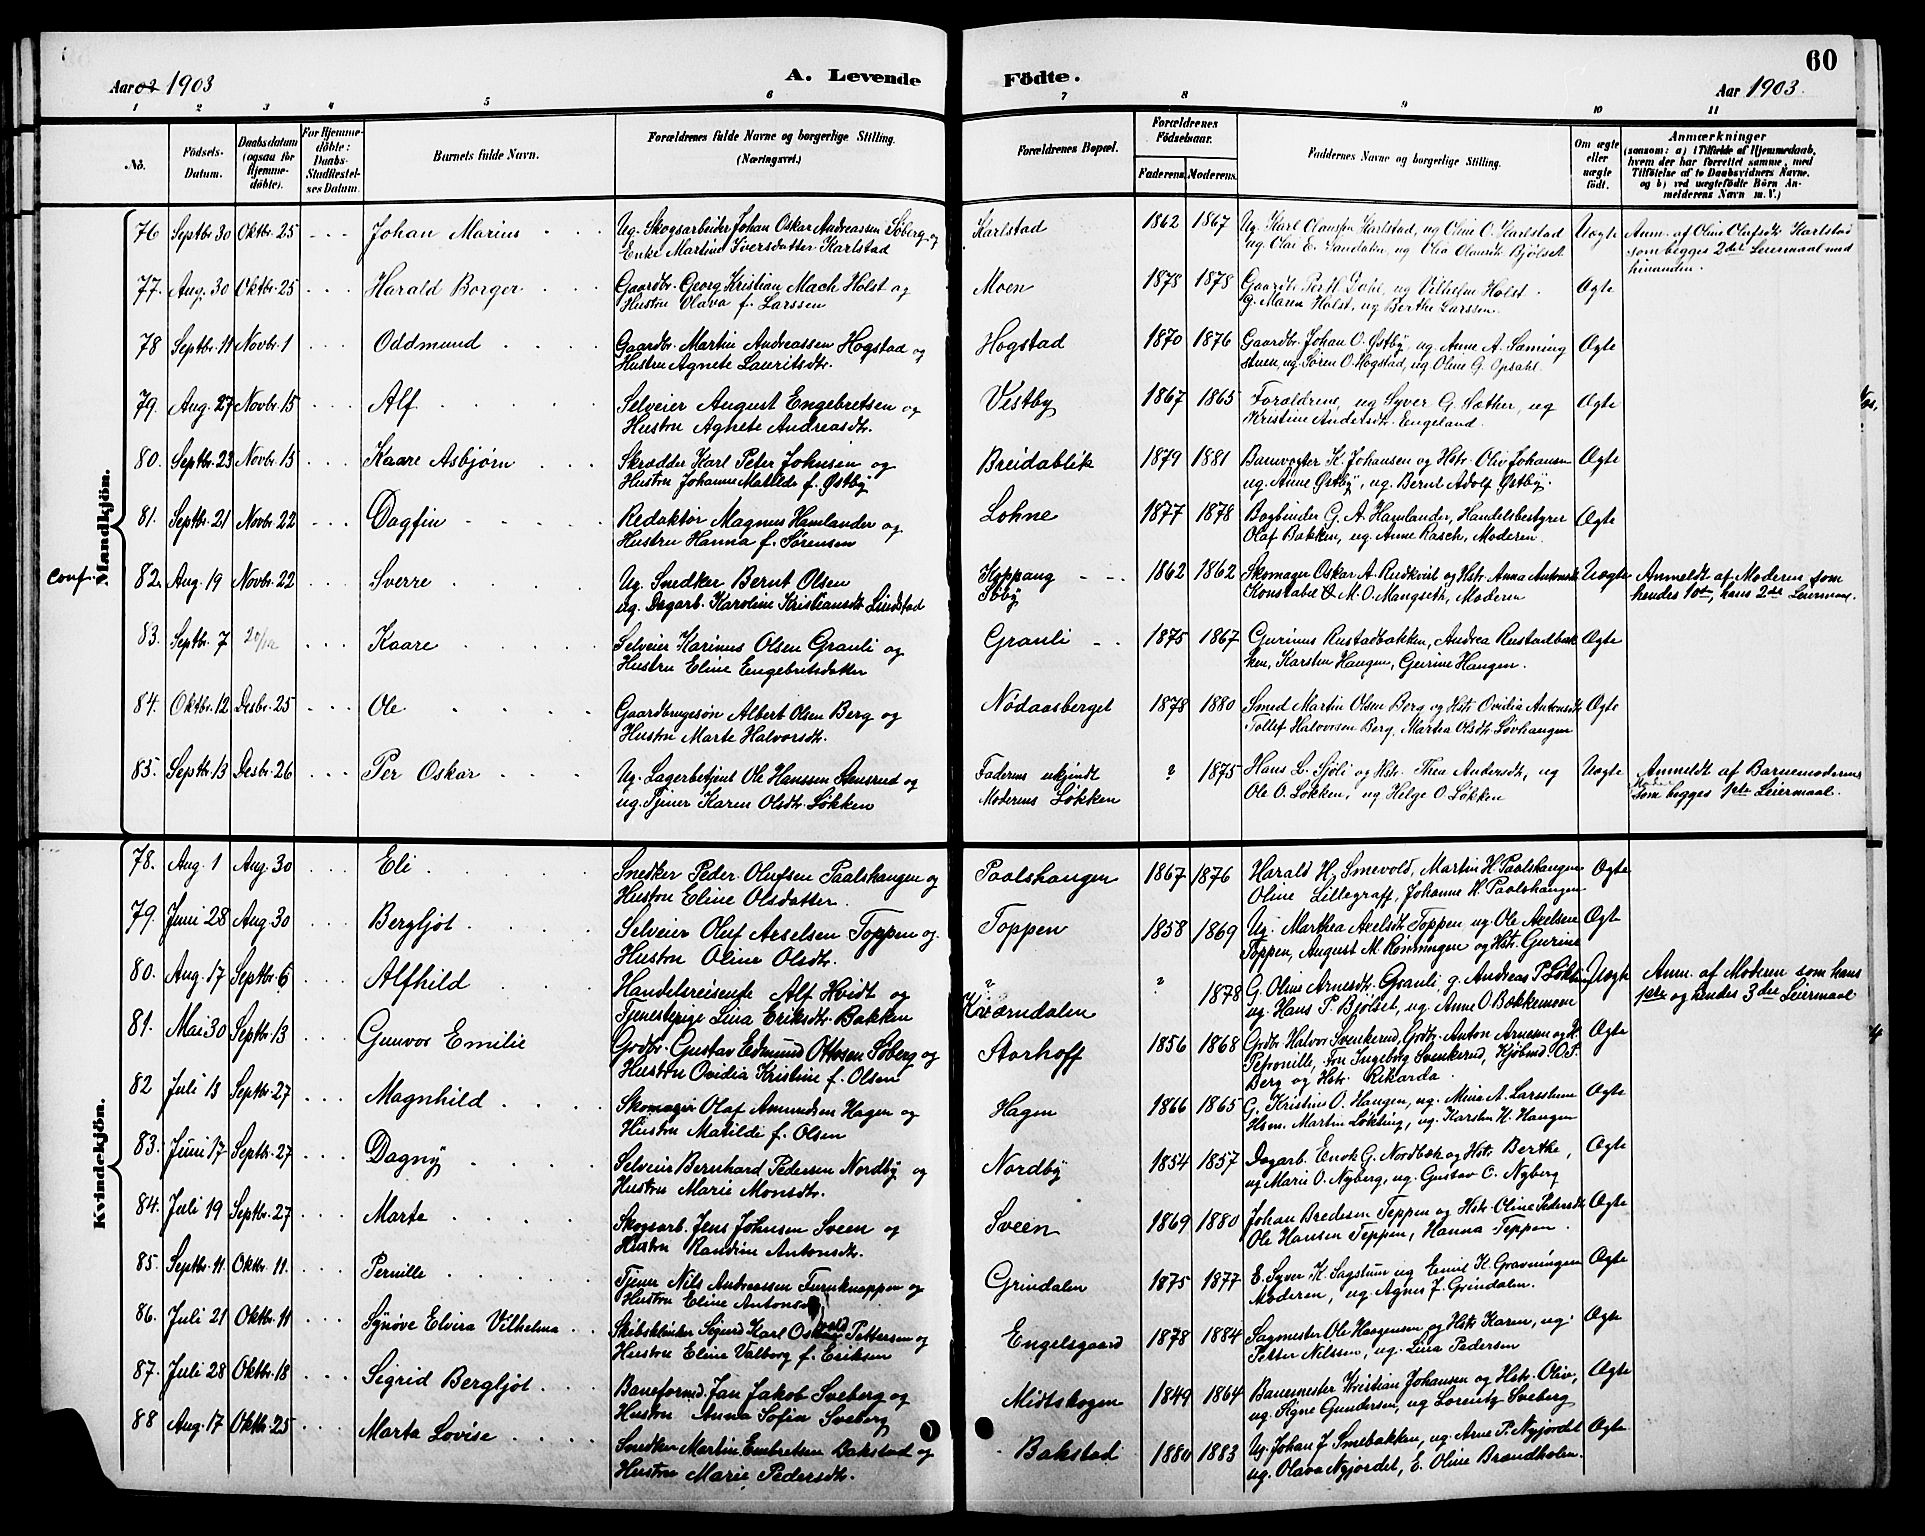 60
Aar 1903
A. Levende Födte.
Aar 1903.
1 2 3 4 5 6 7 8 9 10 11
No.
Födsels-Datum.
Daabsdatum (ogsaa for Hjemmedöbte).
For Hjemmedöbte: Daabs-Stadfæstelses Datum.
Barnets fulde Navn.
Forældrenes fulde Navne og borgerlige Stilling. (Næringsvei.)
Forældrenes Bopæl.
Forældrenes Födselsaar.
Faderens. Moderens.
Faddernes Navne og borgerlige Stilling.
Om ægte eller uægte födt.
Anmærkninger
(saasom: a) i Tilfælde af Hjemmedaab, hvem der har forrettet samme, med Tilföielse af to Daabsvidners Navne, og b) ved uægtefödte Börn Anmelderens Navn m. V.)
Mandkjön.
76 Septbr 30 Oktbr. 25 Johan Marius Ug. Skogsarbeider Johan Oskar Andreassen Söberg og Karlstad 1862 1867 Ug. Karl Olausen Karlstad, ug Oline O. Karlstad Uægte Anm. af Oline Olafsdt Karlstad
Enke Martine Iversdatter Karlstad ug. Olai E. Sandalen, ug Olia Olausdt Bjölset som begges 2det Leiermaal med
hinanden.
77. Aug. 30 Oktbr. 25 Harald Borger Gaardbr. Georg Kristian Mach Holst og Moen 1878 1878 Gaardb. Per H. Dahl, ug Vilhelm Holst. Ægte
Hustru Olava f. Larssen g. Maren Holst, ug Berthe Larssen.
78 Septbr. 11 Novbr. 1 Oddmund Gaardbr. Martin Andreassen Hogstad og Hogstad 1870 1876 Gaardbr. Johan O. Østby, ug. Anne A. Sæming Ægte
Hustru Agnete Lauritsdtr. stuen, ug. Søren O. Hogstad, ug Oline G. Opsahl.
79. Aug. 27 Novbr. 15 Alf Selveier August Engebretsen og Vestby 1867 1865 Forældrene, ug Syver G. Sæther, ug Ægte
Hustru Agnete Andreasdt. Kristine Andersdt. Engeland.
80. Septbr. 23 Novbr. 15 Kaare Asbjørn Skrædder Karl Peter Johnsen og Breidablik 1879 1881 Banevogter K. Johansen og Hstr. Oliv Johansen Ægte
Hustru Johanne Matilde f. Østby ug. Anne Østby, ug. Bernt Adolf Østby.
81. Septbr. 21 Novbr. 22 Dagfin Redaktør Magnus Hamlander og Lohne 1877 1878 Bogbinder G. A. Hamlander, Handelsbestyrer Ægte
Hustru Hanna f. Sørensen Olaf Bakken, ug. Anne Rasch, Moderen.
conf. 82. Aug. 19 Novbr. 22 Sverre Ug. Snedker Bernt Olsen Koppang 1862 1862 Skomager Oskar A. Rudkvist og Hstr. Anna Antonsdt. Uægte Anmeldt af Moderen som
ug. Dagarb. Karoline Kristiansdt. Lindstad Iby Konstabel M. O. Mangseth, Moderen hendes 1ste, hans 2det Leiermaal.
83. Septbr. 7 20/12 Kaare Selveier Karinus Olsen Granli og Granli 1875 1867 Gurinus Rustadbakken, Andrea Rustadbak Ægte
Hustru Eline Engebretsdatter ken, Karsten Haugen, Gurine Haugen.
84. Oktbr. 12 Desbr. 25 Ole Gaardbrugesøn Albert Olsen Berg og Nødaasberget 1878 1880 Smed Martin Olsen Berg og Hstr Ovidia Antonsdt Ægte
Hustru Marte Halvorsdt. Tollef Halvorsen Berg, Martea Olsdt. Løvhaugen
85. Septbr. 13 Desbr. 26 Per Oskar Ug. Lagerbetjent Ole Hanssen Stensrud og Faderens ukjendt ? 1875 Hans L. Sjöli og Hstr. Thea Andersdt, ug Uægte Anmeldt af Barnemoderens
ug. Tjener Karen Olsdt. Løkken Moderens Løkken Ole O. Løkken, ug Helge O. Løkken som begges 1ste Leiermaal.
Kvindekjön.
78. Aug. 1 Aug. 30 Eli Snedker Peder Olufsen Paalshaugen og Paalshaugen 1867 1876 Harald H. Smevold, Martin H. Paalshaugen Ægte
Hustru Eline Olsdatter. Oline Lillegraff, Johanne H. Paalshaugen
79. Juni 28 Aug. 30 Bergljot Selveier Oluf Axelsen Toppen og Toppen 1858 1869 Ug. Marthea Axelsdt Toppen, ug. Ole Axelsen Ægte
Hustru Oline Olsdt. Toppen, August M. Rønningen og Hstr. Gurine
80. Aug. 17 Septbr. 6 Alfhild Handelsreisende Alf Hvidt og ? ? 1878 G. Oline Arnesdt. Granli, g. Andreas P. Løkken Uægte Anm. af Moderen som hans
Tjenestepige Lina Eriksdt. Bakken Kværndalen ug. Hans P. Bjølset, ug. Anne O Bakkemoen 1ste og hendes 3die Leiermaal
81. Mai 30 Septbr. 13 Gunvor Emilie Grdbr. Gustav Edmund Ottosen Søberg og Storhoff 1856 1868 Grdbr Halvor Svenkerud, Grdbr. Anton Arnesen og H. Ægte
Hustru Ovidia Kristine f. Olsen Petronille, Fru Ingeborg Svenkerud, Kjøbmd O. F.
Berg og Hstr. Rikarda.
82 Juli 13 Septbr. 27 Magnhild Skomager Olaf Amundsen Hagen og Hagen 1866 1865 G. Kristine O. Haugen, ug. Mina A. Larsstuen Ægte
Hustru Matilde f. Olsen Hsm. Martin Løkting, ug. Karsten H. Haugen
83. Juni 17 Septbr. 27 Dagny Selveier Bernhard Pedersen Nordby og Nordby 1854 1857 Dagarb. Enok G. Nordbæk og Hstr Berthe, Ægte
Hustru Marie Monsdt. ug Marie O. Nyberg, ug. Gustav O. Nyberg
84. Juli 19 Septbr. 27 Marte Skogsarb. Jens Johnsen Sveen og Sveen 1869 1880 Johan Bredesen Teppen og Hstr. Oline Pedersdt. Ægte
Hustru Randine Antonsdt. Ole Hansen Teppen, Hanna Teppen.
85. Septbr. 11 Oktbr. 11. Pernille Tjener Nils Andreassen Furuknappen og Grindalen 1875 1877 E. Syver K. Sagstum ug Emil K. Gravningen Ægte
Hustru Eline Antonsd Moderen, ug. Agnes J. Grindalen.
86. Juli 21 Oktbr. 11 Synøve Elvira Vilhelma Skibsklinker Sigurd Karl Oskar Pettersen og Engelsgaard 1878 1884 Sagmester Ole Haagensen og Hstr Karen, ug. Ægte
Hustru Eline Valborg f. Eriksen Petter Nilssen, ug. Lina Pedersen
87. Juli 28 Oktbr. 18 Sigrid Bergljot Baneformd. Jan Jakob Sveberg og Midtskogen 1849 1864 Banemester Kristian Johansen og Hstr. Oliv, Ægte
Hustru Anna Sofia Sveberg ug. Signe Gundersen, ug Lorentz Sveberg
88 Aug. 17 Oktbr. 25 Marta Lovise Snedker Martin Embretsen Bakstad og Bakstad 1880 1883 Ug. Johan J. Smebakken, ug. Arne P. Nyjordet Ægte
Hustru Marie Pedersdt. ug. Olava Nyjordet, E. Oline Brændholen.